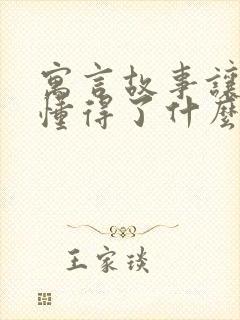 寓言故事讓
懂得了什麼
王家琰